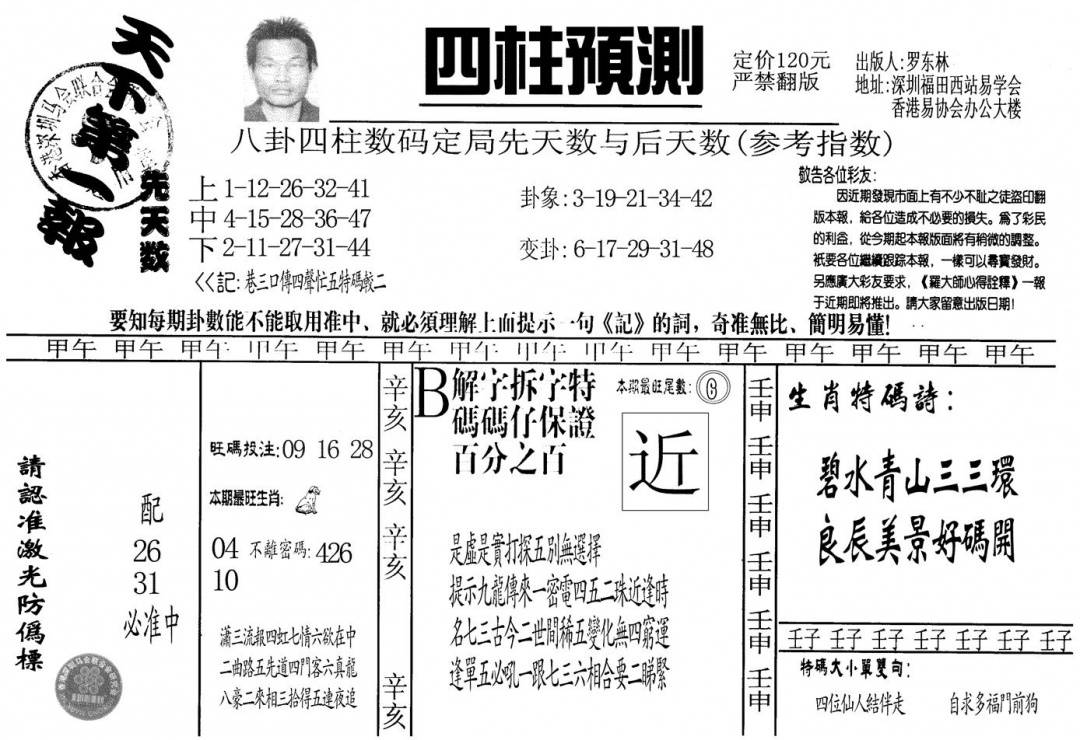 天下第一報
四柱預測
定价120元
严禁翻版
出版人:罗东林
地址:深圳福田西站易学会
香港易协会办公大楼
八卦四柱数码定局先天数与后天数(参考指数)
先天数
上1-12-26-32-41
中4-15-28-36-47
下2-11-27-31-44
卦象:3-19-21-34-42
变卦:6-17-29-31-48
<<記:巷三口傳四聲忙五特碼較二
敬告各位彩友:
因近期發現市面上有不少不耻之徒盜印翻
版本報，給各位造成不必要的損失。爲了彩民
的利益，從今期起本報版面將有稍微的調整。
衹要各位繼續跟踪本報，一樣可以尋寶發財。
另應廣大彩友要求，《羅大師心得詮釋》一報
于近期即將推出。請大家留意出版日期!
要知每期卦數能不能取用准中、就必須理解上面提示一句《記》的詞，奇准無比、簡明易懂!
甲午 甲午 甲午 甲午 甲午 甲午 甲午 甲午 甲午 甲午 甲午 甲午 甲午 甲午 甲午
請認准激光防僞標
配
26
31
必准中
旺碼投注:09 16 28
本期最旺生肖:
04 不離密碼:426
10
瀟三流報四虹七情六欲在中
二曲路五先道四門客六真龍
八豪二來相三拾得五連夜追
辛亥
辛亥
辛亥
辛亥
B解字拆字特
碼碼仔保證
百分之百
本期最旺尾數:
近
是虛是實打探五別無選擇
提示九龍傳來一密電四五二珠近逢時
名七三古今二世間稀五變化無四窮運
逢單五必吼一跟七三六相合要二睇緊
壬申
壬申
壬申
壬申
壬申
壬申
生肖特碼詩:
碧水青山三三環
良辰美景好碼開
壬子 壬子 壬子 壬子 壬子 壬子 壬子
特碼大小單雙句:
四位仙人結伴走 自求多福門前狗